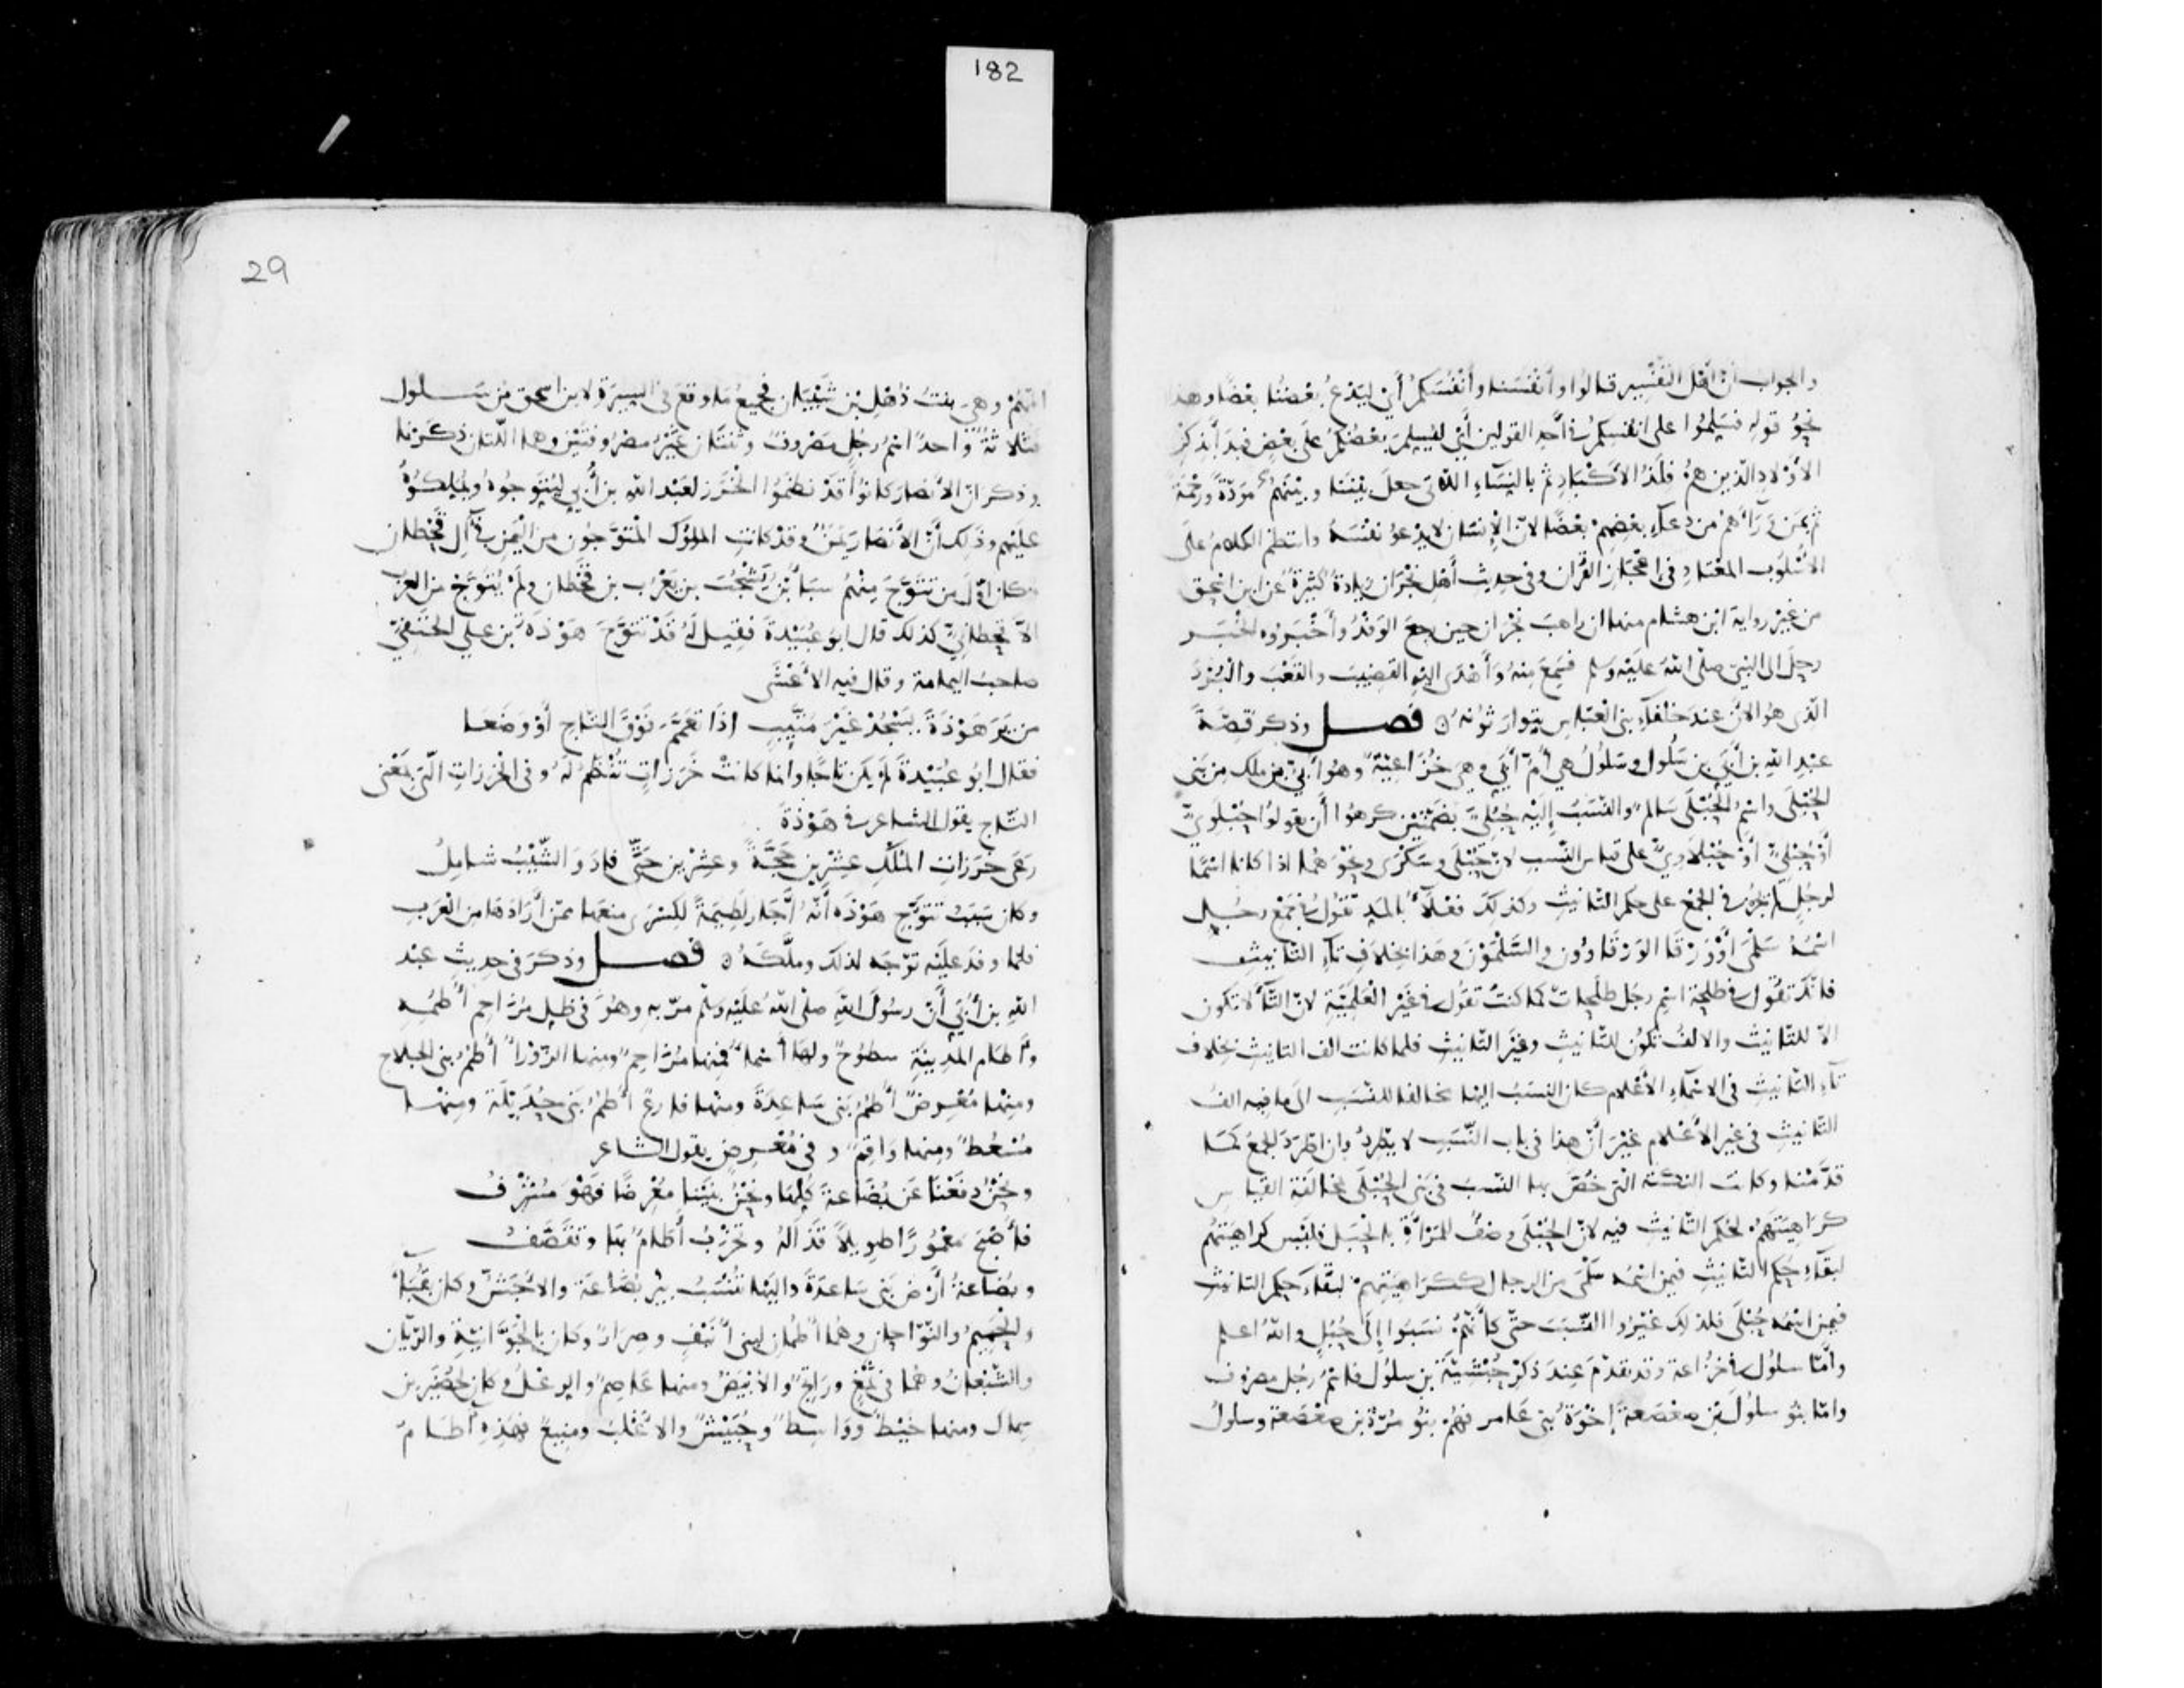 182
والجواب أنّ أهل التفسير قالوا وأنفسنا وأنفسكم أي ليدع بعضنا بعضا وهذا
نحو قوله فسلموا على أنفسكم في أحد القولين أي ليسلم بعضكم على بعض فبدأ بذكر
الأولاد الذين هم فلذ الأكباد ثم بالنساء اللاتي جعل بيننا وبينهم مودة ورحمة
ثم بمن ورآءهم من دعآء بعضهم بعضا لأنّ الإنسان لا يدعو نفسه وانتظم الكلام على
الأسلوب المعتاد في إعجاز القرآن وفي حديث أهل نجران زيادة كثيرة عن ابن اسحق
من غير رواية ابن هشام منها ان راهب نجران حين رجع الوفد وأخبروه الخبر
رحل الى النبي صلى الله عليه وسلم فسمع منه وأهدى اليه القضيب والقعب والبرد
الذي هو الان عند خلفآء بني العباس يتوارثونه ۞ فصل وذكر قصة
عبد الله بن أبي بن سلول وسلول هي أم أبي وهي خزاعية وهو أبي بن ملك من بني
الحبلى واسم الحبلى سالم والنسب إليه حبلي بضمتين كرهوا أن يقولوا حبلوي
أو حبلي أو حبلاوي على قياس النسب لأن حبلى وسكرى ونحوهما اذا كانا اسما
لرجل لم يجر في الجمع على حكم التانيث وكذلك فعلاء بالمد تقول في جمع رجل
اسمه سلمى أو ورقا الورقاوون والسلمون وهذا بخلاف تآء التانيث
فانك تقول في طلحة اسم رجل طلحات كما كنت تقول في غير العلمية لانّ التآء لا تكون
الا للتانيث والالف تكون للتانيث وغير التانيث فلما كانت الف التانيث بخلاف
تآء التانيث في الاسمآء الأعلام كان النسب اليها مخالفا للنسب الى ما فيه الف
التانيث في غير الأعلام غير أنّ هذا في باب النسب لا يطرد وان اطرد الجمع كما
قدمنا وكانت النكتة التي خص بها النسب في بني الحبلى بمخالفة القياس
كراهيتهم لحكم التانيث فيه لانّ الحبلى وصف للمرأة بالحبل فليس كراهيتهم
لبقآء حكم التانيث فيمن اسمه سلمى من الرجال ككراهيتهم لبقآء حكم التانيث
فيمن اسمه حبلى فلذلك غيروا النسب حتى كأنهم نسبوا إلى حبل والله أعلم
وأمّا سلول في خزاعة وقد تقدم عند ذكر حبشية بن سلول فاسم رجل مصروف
وامّا بنو سلول بن صعصعة إخوة بني عامر فهم بنو مرة بن صعصعة وسلول
29
أمهم وهي بنت ذهل بن شيبان فجميع ما وقع في السيرة لابن اسحق من سلول
ثلاثة واحد اسم رجل مصروف وثنتان غير مصروفتين وهما اللتان ذكرنا
وذكر أن الأنصار كانوا قد نظموا الخرز لعبد الله بن أبي ليتوجوه ويملكوه
عليهم وذلك أنّ الأنصار يمن وقد كانت الملوك المتوجون من اليمن في آل قحطان
وكان أول من تتوج منهم سبأ بن يشجب بن يعرب بن قحطان ولم يتوج من العرب
الاّ قحطاني كذلك قال ابو عبيدة فقيل له قد تتوج هوذة بن علي الحنفي
صاحب اليمامة وقال فيه الأعشى
من ير هوذة يسجد غير متئب إذا تعمم فوق التاج أو وضعا
فقال ابو عبيدة لم يكن تاجا وانما كانت خرزات تنظم له وفي الخرزات التي بمعنى
التاج يقول الشاعر في هوذة
رعى خرزات الملك عشرين حجة وعشرين حتى فاد والشيب شامل
وكان سبب تتوج هوذة أنه أجار لطيمة لكسرى منعها ممن أرادها من العرب
فلما وفد عليه توجه لذلك وملكه ۞ فصل وذكر في حديث عبد
الله بن أبي أن رسول الله صلى الله عليه وسلم مرّ به وهو في ظل مزاحم أطمه
وآطام المدينة سطوح ولها أسماء فمنها مزاحم ومنها الزورا أطم بني الجلاح
ومنها معرض أطم بني ساعدة ومنها فارع أطم بني حديلة ومنها
مسعط ومنها واقم و في معرض يقول الشاعر
ونحن دفعنا عن بضاعة كلها ونحن بنينا معرضا فهو مشرف
فأصبح معمورا طويلا قذاله وتخرب أطام بها وتقصف
وبضاعة أرض بني ساعدة واليها تنسب بير بضاعة والأجش وكان بقبآء
والحميم والنواحان وهما أطمان لبني أنيف وصرار وكان بالجوانية والريان
والشبعان وهما في ثمغ وراتج والأبيض ومنها عاصم والرعل وكان لحضير بن
سماك ومنها خيط وواسط وحبيش والأغلب ومنيع فهذه أطام